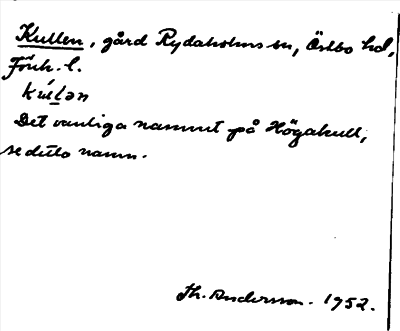 Kullen, gård Rydaholms sn, Östbo hd,
Jönk. l.
kúllən
Det vanliga namnet på Högakull,
se detta namn.
Th. Andersson. 1952.